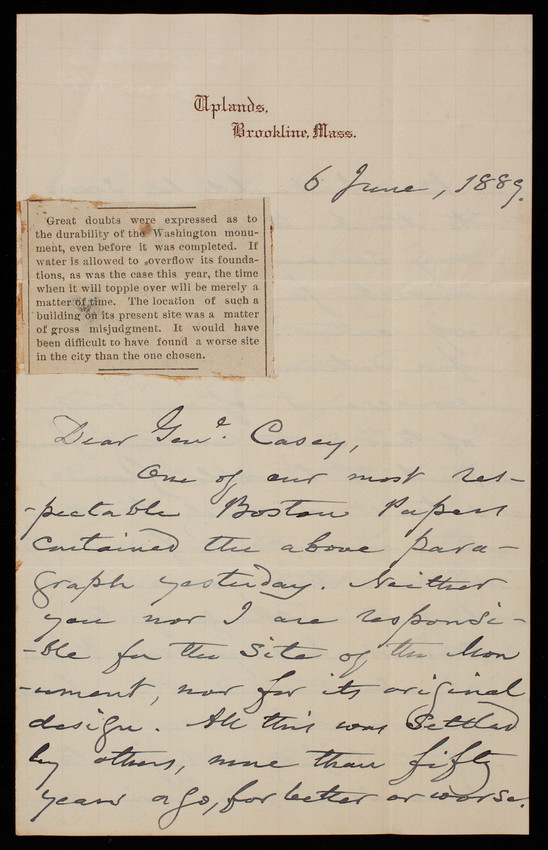 Uplands,
Brookline, Mass.
6 June, 1889.
Great doubts were expressed as to
the durability of the Washington monu-
ment, even before it was completed. If
water is allowed to overflow its founda-
tions, as was the case this year, the time
when it will topple over will be merely a
matter of time. The location of such a
building on its present site was a matter
of gross misjudgment. It would have
been difficult to have found a worse site
in the city than the one chosen.
Dear Genl. Casey,
One of our most res-
-pectable Boston Papers
contained the above para-
graph yesterday. Neither
you nor I are responsi-
-ble for the Site of the Mon
-ument, nor for its original
design. All this was settled
by others, more than fifty
years ago, for better or worse.